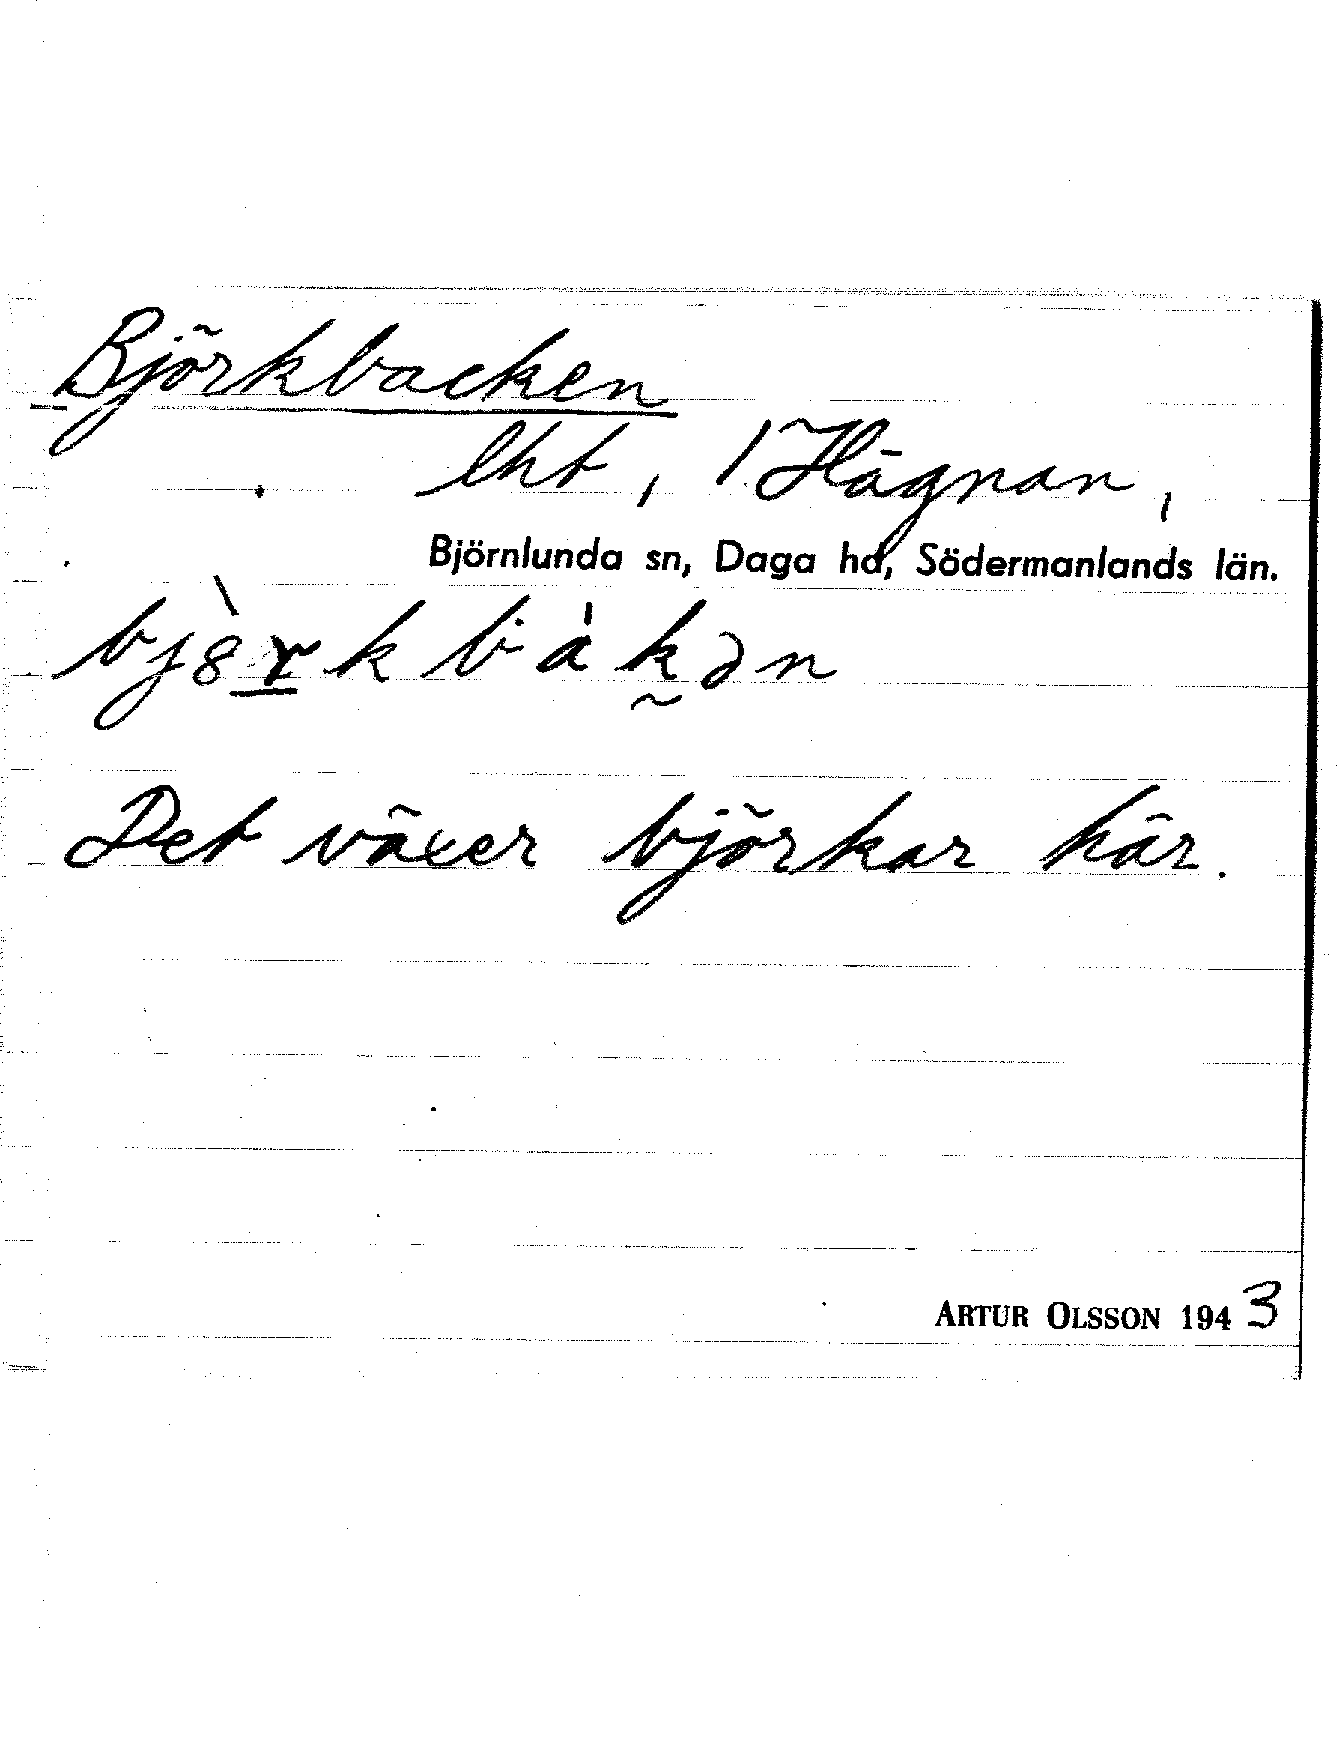 Björkbacken
lht, 1 Hägnan,
Björnlunda sn, Daga hd, Södermanlands län.
bjȣ̀rkbákən
Det växer björkar här.
ARTUR OLSSON 1943